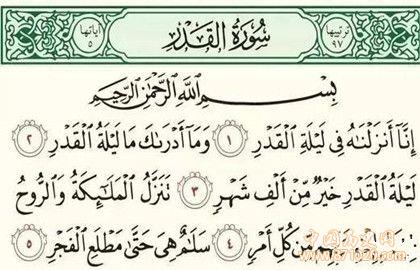 ترتيبها ٩٧ سُورَةُ القَدْرِ آياتها ٥
بِسْمِ ٱللَّهِ ٱلرَّحْمَٰنِ ٱلرَّحِيمِ
إِنَّآ أَنزَلْنَٰهُ فِى لَيْلَةِ ٱلْقَدْرِ ١ وَمَآ أَدْرَىٰكَ مَا لَيْلَةُ ٱلْقَدْرِ ٢
لَيْلَةُ ٱلْقَدْرِ خَيْرٌ مِّنْ أَلْفِ شَهْرٍ ٣ تَنَزَّلُ ٱلْمَلَٰٓئِكَةُ وَٱلرُّوحُ
مِّن كُلِّ أَمْرٍ ٤ سَلَٰمٌ هِىَ حَتَّىٰ مَطْلَعِ ٱلْفَجْرِ ٥